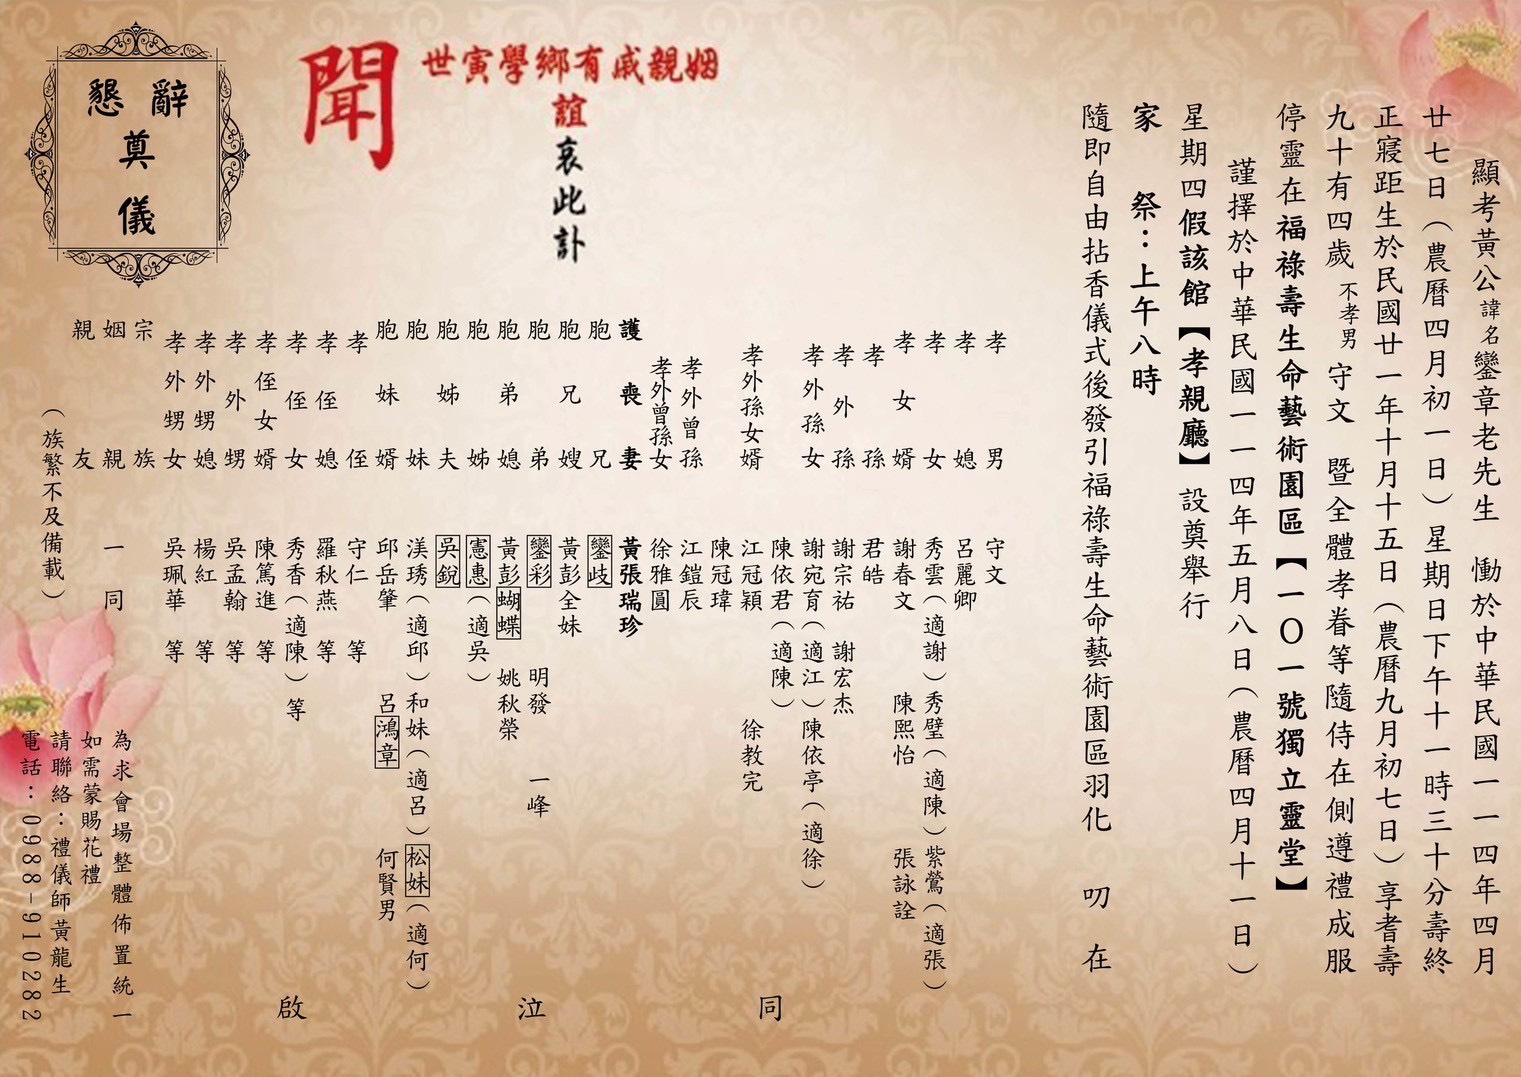 顯考黃公諱名鑾章老先生　慟於中華民國一一四年四月
廿七日（農曆四月初一日）星期日下午十一時三十分壽終
正寢距生於民國廿一年十月十五日（農曆九月初七日）享耆壽
九十有四歲 不孝男 守文　暨全體孝眷等隨侍在側遵禮成服
停靈在福祿壽生命藝術園區【一〇一號獨立靈堂】
謹擇於中華民國一一四年五月八日（農曆四月十一日）
星期四假該館【孝親廳】設奠舉行
家　祭：上午八時
隨即自由拈香儀式後發引福祿壽生命藝術園區羽化　叨　在
姻親戚有鄉學寅世
誼
聞
哀此訃
孝男 守文
孝媳 呂麗卿
孝女 秀雲（適謝）秀璧（適陳）紫鶯（適張）
孝女婿 謝春文　陳熙怡　張詠詮
孝孫 君皓
孝外孫 謝宗祐　謝宏杰
孝外孫女 謝宛育（適江）陳依亭（適徐）
陳依君（適陳）
孝外孫女婿 江冠穎　徐教完
陳冠瑋
孝外曾孫 江鎧辰
孝外曾孫女 徐雅圓
護喪妻 黃張瑞珍
胞兄 鑾歧
胞兄嫂 黃彭全妹
胞弟 鑾彩　明發　一峰
胞弟媳 黃彭蝴蝶　姚秋榮
胞姊 憲惠（適吳）
胞姊夫 吳銳
胞妹 渼琇（適邱）和妹（適呂）松妹（適何）
胞妹婿 邱岳肇　呂鴻章　何賢男
孝侄 守仁　等
孝侄媳 羅秋燕　等
孝侄女 秀香（適陳）等
孝侄女婿 陳篤進　等
孝外甥 吳孟翰　等
孝外甥媳 楊紅　等
孝外甥女 吳珮華　等
宗族
姻親 一同
親友
（族繁不及備載）
同泣啟
懇辭
奠
儀
為求會場整體佈置統一
如需蒙賜花禮
請聯絡：禮儀師黃龍生
電話：0988-910282